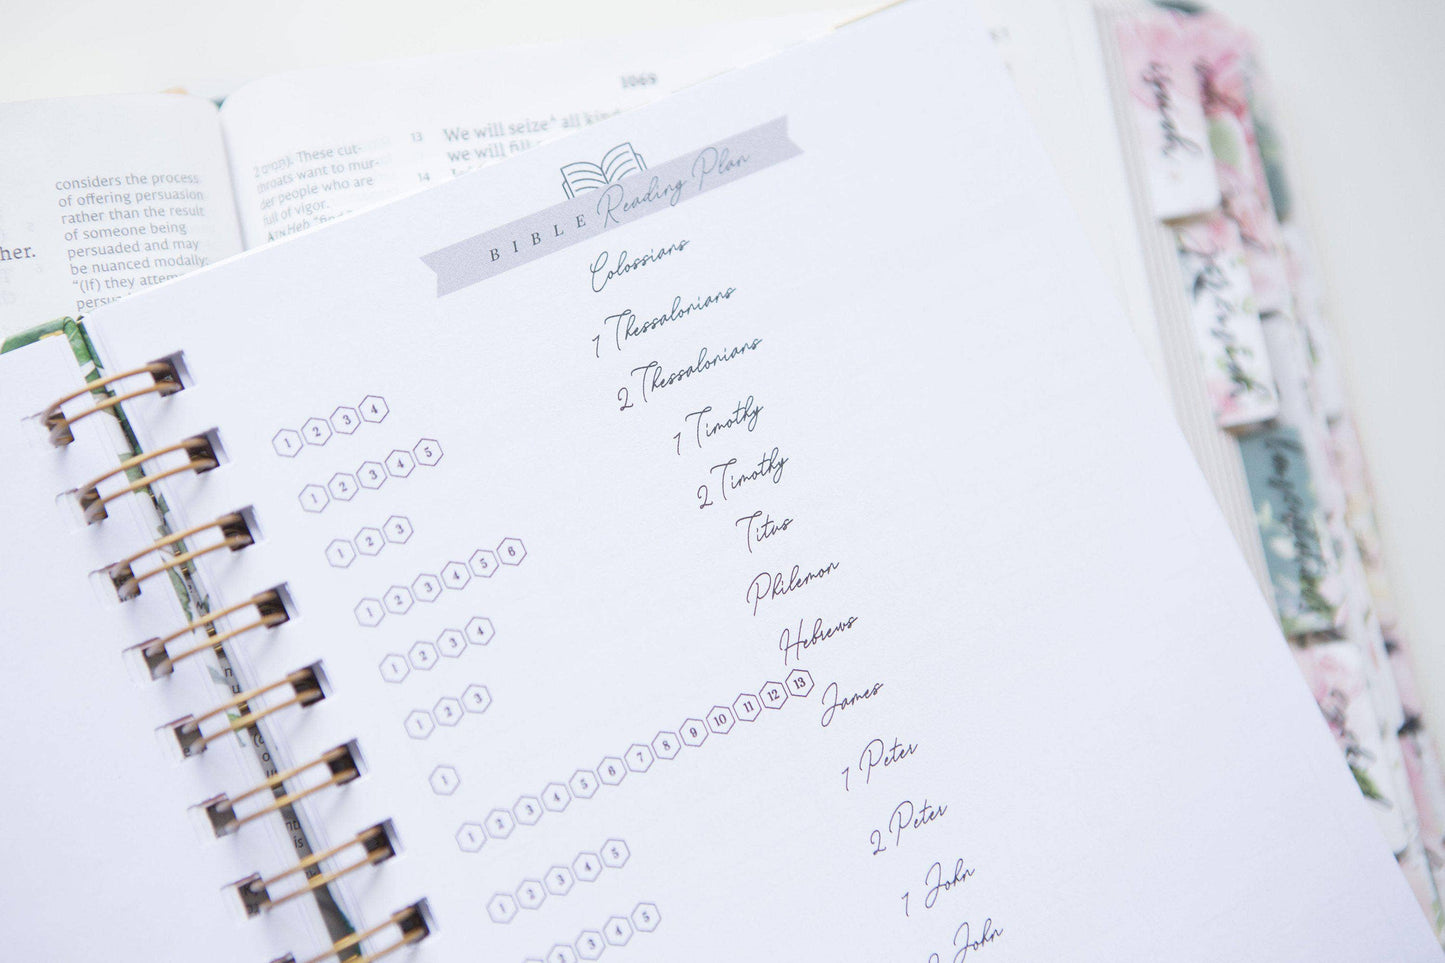 1069
13 We will seize^A all
we will fill
14
2 (10:12). These cut-
throats want to mur-
der people who are
full of vigor.
her.
considers the process
of offering persuasion
rather than the result
of someone being
persuaded and may
be nuanced modally:
“(If) they
BIBLE Reading Plan
Colossians
1 2 3 4
1 Thessalonians
1 2 3 4 5
2 Thessalonians
1 2 3
1 Timothy
1 2 3 4 5 6
2 Timothy
1 2 3 4
Titus
1 2 3
Philemon
1
Hebrews
1 2 3 4 5 6 7 8 9 10 11 12 13
James
1 2 3 4 5
1 Peter
1 2 3 4 5
2 Peter
1 John
John
Isaiah